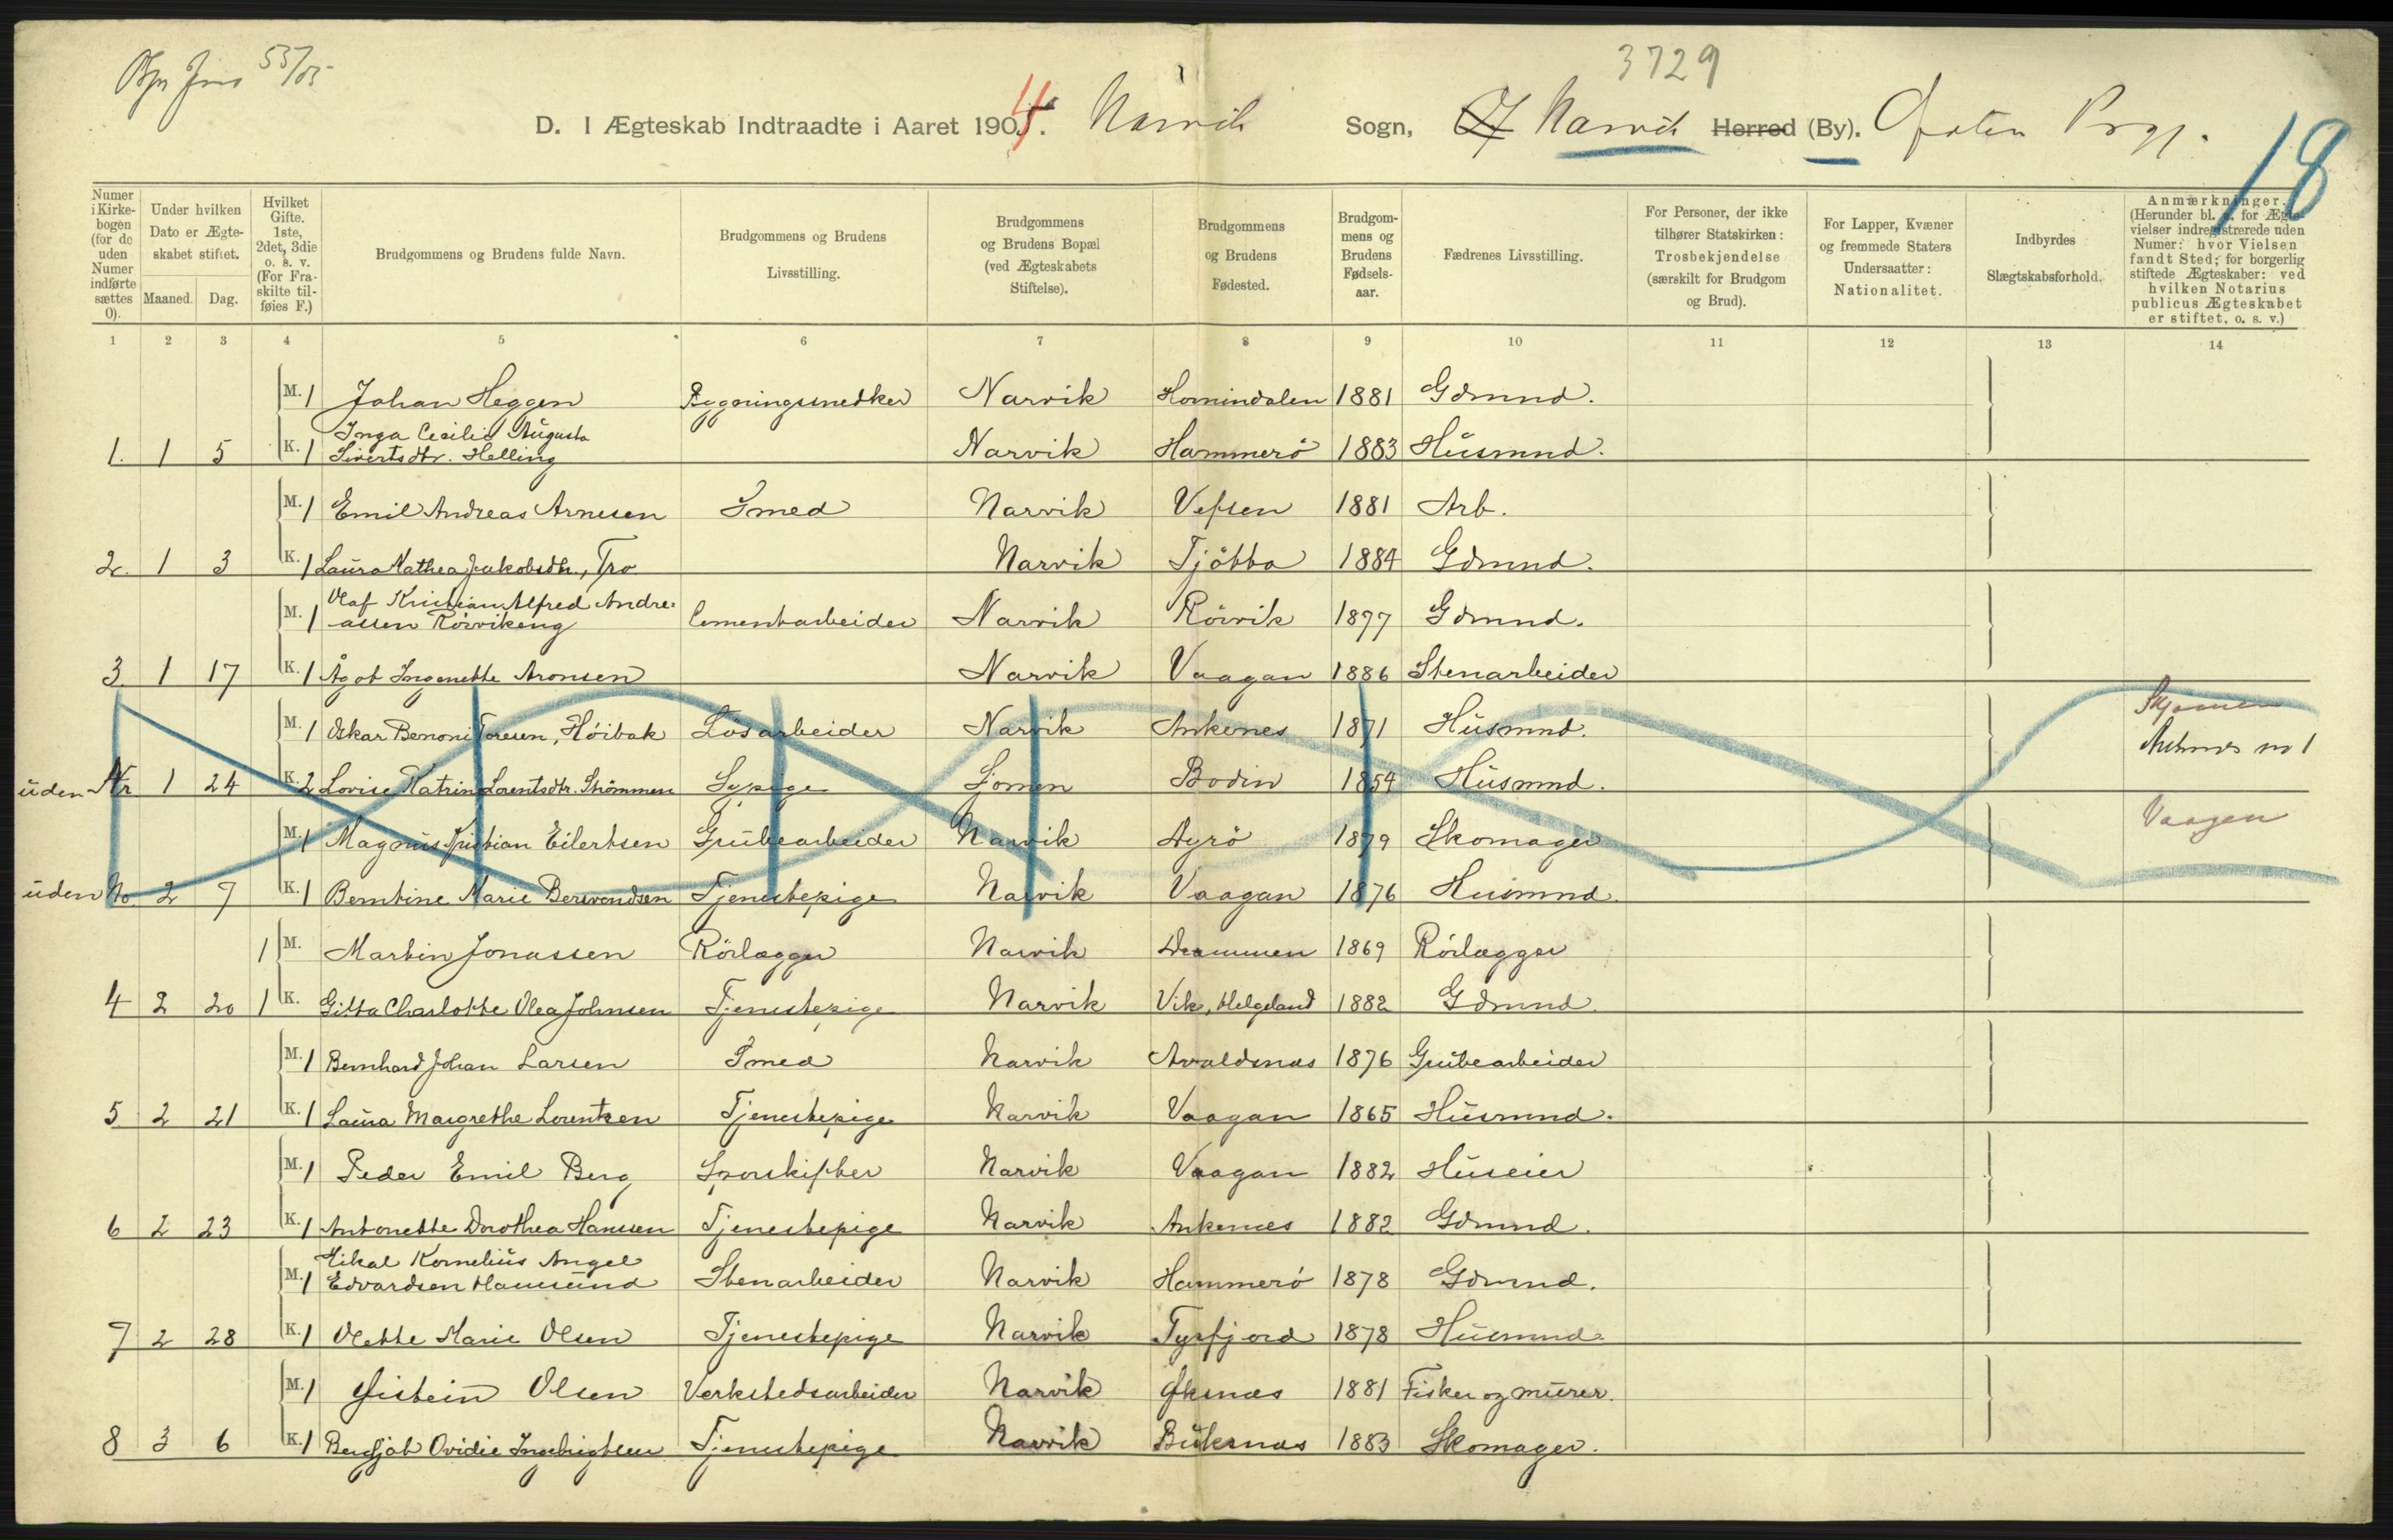 3729
18
D. I Ægteskab Indtraadte i Aaret 1904. Narvik Sogn, Narvik Herred (By). Ofoten Prgj.
Numer i Kirkebogen (for de uden Numer indførte sættes 0).
Under hvilken Dato er Ægteskabet stiftet.
Maaned. Dag.
Hvilket Gifte. 1ste, 2det, 3die o. s. v. (For Fraskilte tilføies F.)
Brudgommens og Brudens fulde Navn.
Brudgommens og Brudens Livsstilling.
Brudgommens og Brudens Bopæl (ved Ægteskabets Stiftelse).
Brudgommens og Brudens Fødested.
Brudgommens og Brudens Fødselsaar.
Fædrenes Livsstilling.
For Personer, der ikke tilhører Statskirken: Trosbekjendelse (særskilt for Brudgom og Brud).
For Lapper, Kvæner og fremmede Staters Undersaatter: Nationalitet.
Indbyrdes Slægtskabsforhold.
Anmærkninger. (Herunder bl. a. for Ægtevielser indregistrerede uden Numer: hvor Vielsen fandt Sted; for borgerlig stiftede Ægteskaber: ved hvilken Notarius publicus Ægteskabet er stiftet, o. s. v.)
1 2 3 4 5 6 7 8 9 10 11 12 13 14
M. 1 Johan Heggen Bygningssnedker Narvik Hornindalen 1881 Gdmnd.
Inga Cecilie Augusta
1. 1 5 K. 1 Sivertsdtr. Helling Narvik Hammerö 1883 Husmnd.
M. 1 Emil Andreas Arnesen Smed Narvik Vefsen 1881 Arb.
2. 1 3 K. 1 Laura Mathea Jakobsdtr., Tro Narvik Tjötta 1884 Gdmnd.
Olaf Kristian Alfred Andre-
M. 1 assen Rörvikeng Cementarbeider Narvik Rörvik 1877 Gdmnd.
3. 1 17 K. 1 Ågot Ingenette Aronsen Narvik Vaagan 1886 Stenarbeider
M. 1 Oskar Benoni Toresen, Höibak Lösarbeider Narvik Ankenes 1871 Husmnd. Skjomen
Ankenes no 1
uden Nr. 1 24 K. 2 Lovise Katrine Lorentsdtr. Strömmen Sypige Sjomen Bodin 1854 Husmnd.
M. 1 Magnus Kristian Eilertsen Grubearbeider Narvik Agrö 1879 Skomager Vaagen
uden No. 2 7 K. 1 Berntine Marie Bersvendsen Tjenestepige Narvik Vaagan 1876 Husmnd.
1 M. Martin Jonassen Rörlægger Narvik Drammen 1869 Rörlægger
4 2 20 1 K. Gitta Charlotte Olea Johnsen Tjenestepige Narvik Vik, Helgeland 1882 Gdmnd.
M. 1 Bernhard Johan Larsen Smed Narvik Avaldsnæs 1876 Grubearbeider
5 2 21 K. 1 Laura Margrethe Lorentzen Tjenestepige Narvik Vaagan 1865 Husmnd.
M. 1 Peder Emil Berg Sporskifter Narvik Vaagan 1882 Huseier
6 2 23 K. 1 Antonette Dorothea Hanssen Tjenestepige Narvik Ankenes 1882 Gdmnd.
Mikal Kornelius Angel
M. 1 Edvardsen Hamsund Stenarbeider Narvik Hammerö 1878 Gdmnd.
7 2 28 K. 1 Olette Marie Olsen Tjenestepige Narvik Tysfjord 1878 Husmnd.
M. 1 Øistein Olsen Verkstedsarbeider Narvik Øksnæs 1881 Fisker og murer.
8 3 6 K. 1 Bergljot Ovidie Ingebrigtsen Tjenestepige Narvik Buksnæs 1883 Skomager.